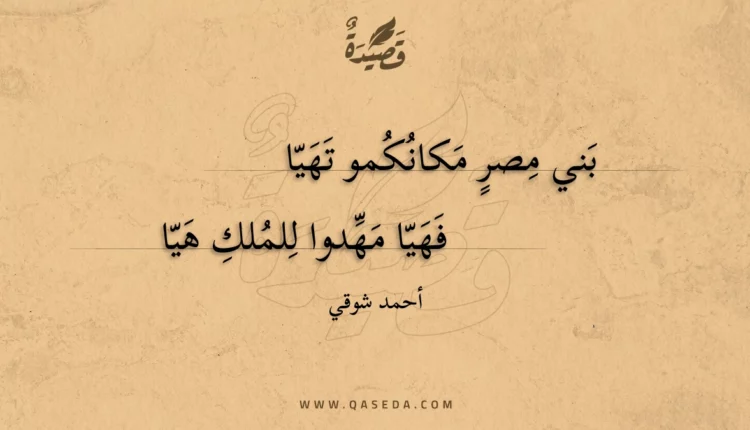 قَصِيدَةٌ
بَني مِصرٍ مَكانُكُمو تَهَيّا
فَهَيّا مَهِّدوا لِلمُلكِ هَيّا
أحمد شوقي
WWW.QASEDA.COM